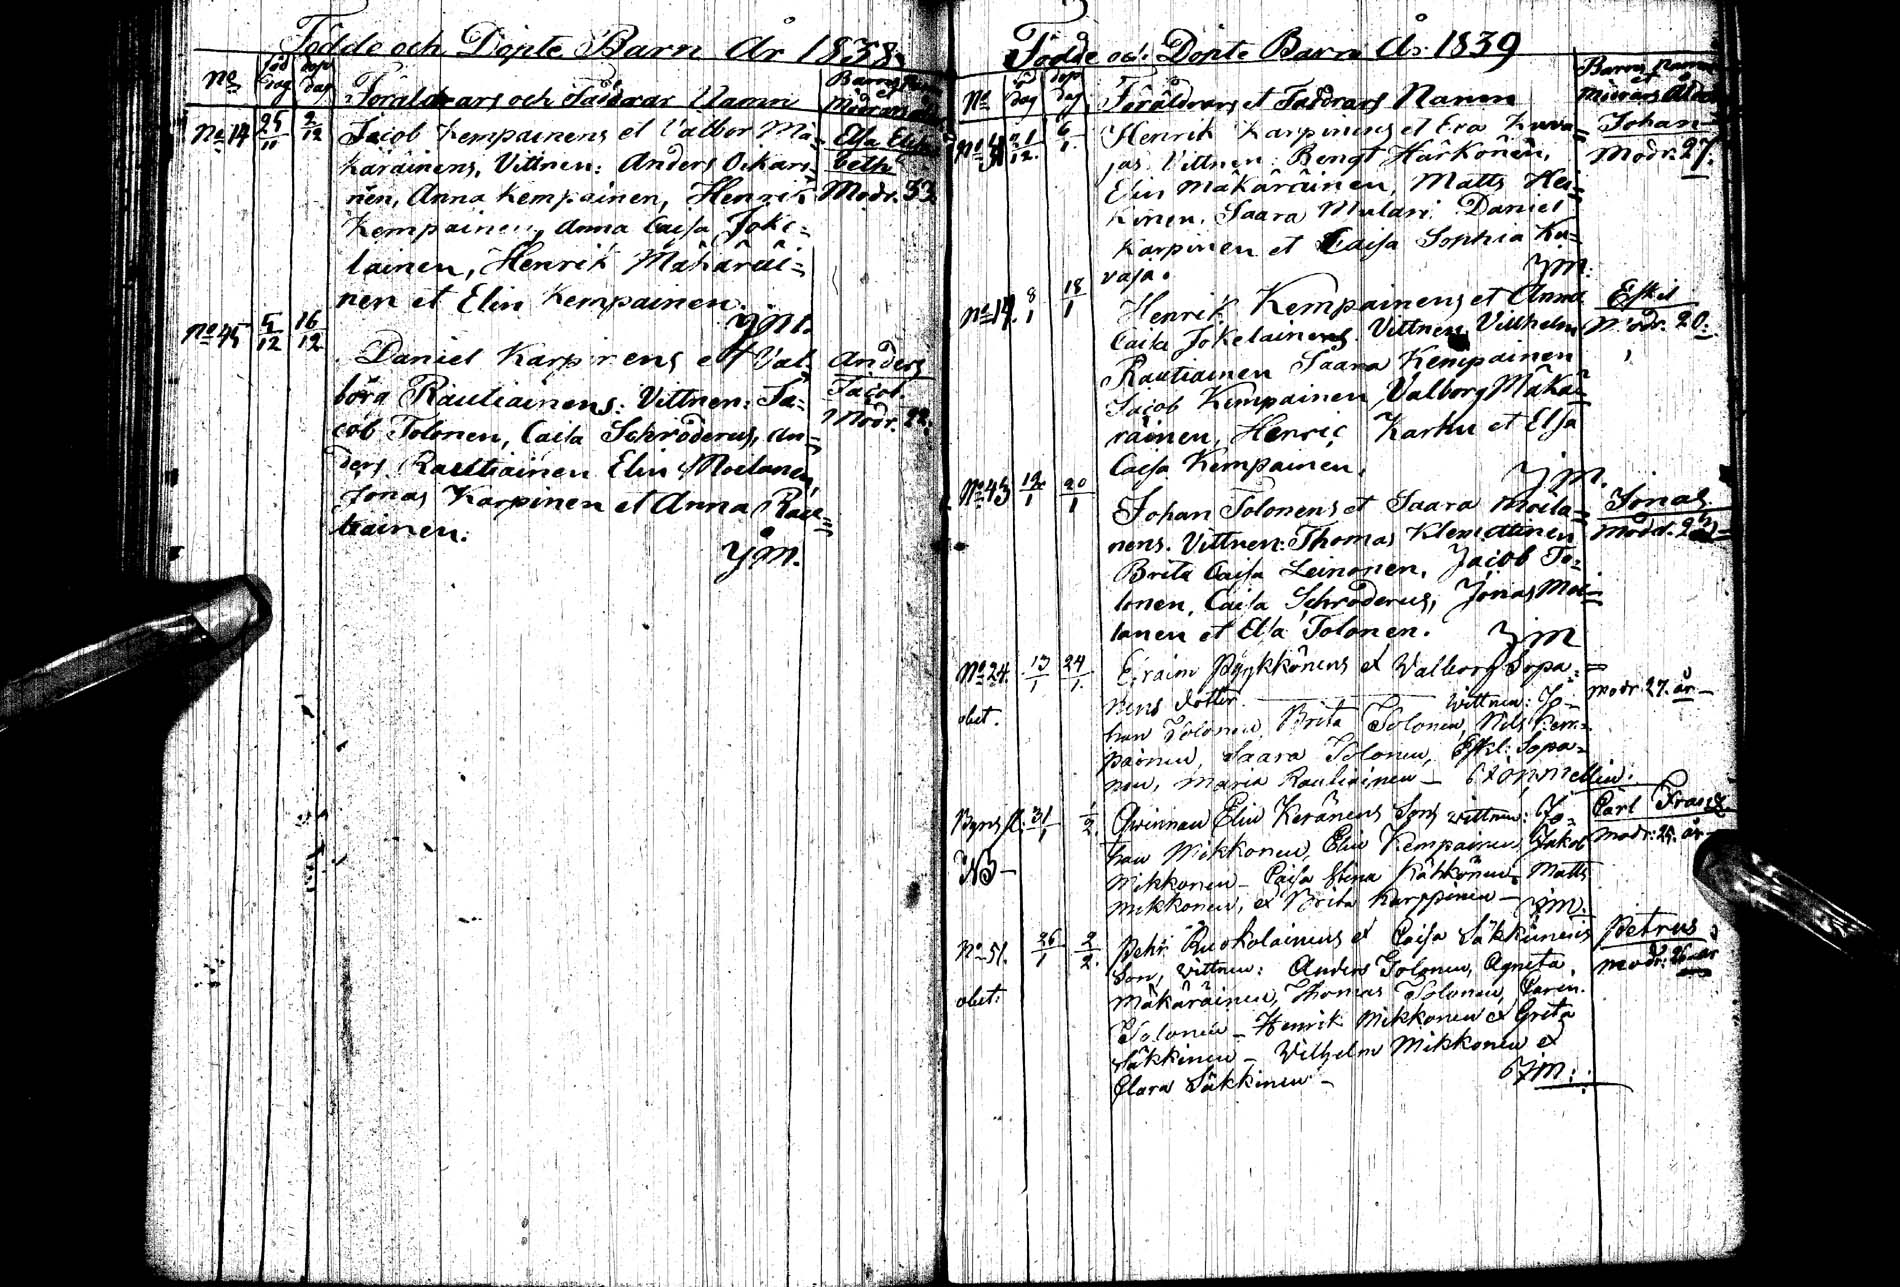 Födde och Döpte Barn År 1838.
No
föd dag
döp dag
Föräldrars och Faddrar Namn
Barnets Namn et Modrens ålder
No 14 25/11 2/12 Jacob Kempainens et Valbor Mä=
karäinens, Vittnen: Anders Oikari=
nen, Anna Kempainen, Henrik
Kempainen, Anna Caisa Joke=
lainen, Henrik Mäkäräi=
nen et Elin Kempainen.
JM.
Elsa Elisa
beth
Modr. 33
No 45 5/12 16/12
Daniel Karpinens et Val=
borg Rautiainens: Vittnen: Ja=
cob Tolonen, Caisa Schroderus, An=
ders Rautiainen Elin Moilanen,
Jonas Karpinen et Anna Rau=
tiainen.
JM.
Anders
Jacob.
Modr. 22.
Födde och Döpte Barn År 1839
No
föd dag
döp dag
Föräldrars et Faddrars Namn
Barns Namn
et
Modrens Ålder
21/12. 6/1. Henrik Karpinens et Eva Kuva=
jas. Vittnen: Bengt Härkönen,
Elin Mäkäräinen, Matts Hei=
kinen, Saara Mulari Daniel
Karpinen et Caisa Sophia Ku=
vaja.
JM.
Johan
Modr. 27.
No 19. 8/1 18/1 Henrik Kempainens et Anna
Caisa Jokelainens. Vittnen Villhelm
Rautiainen Saara Kempainen
Jacob Kempainen, Valborg Mäkä=
räinen, Henric Karhu et Elsa
Caisa Kempainen.
JM.
Eskil
Modr. 20.
No 43 12/1 20/1
Johan Tolonens et Saara Moila=
nens. Vittnen: Thomas Klemettinen
Brita Caisa Leinonen, Jacob To=
lonen, Caisa Schroderus, Jonas Moi=
lanen et Elsa Tolonen.
JM
Jonas.
No 24. 13/1 24/1. Efraim Pyykkönens et Valborg Sopa=
nens dotter. Vittnen: Jo=
han Tolonen, Brita Tolonen, Nils Kem=
painen, Saara Tolonen, Eskl: Sopa=
nen, Maria Rautiainen —
obet.
modr. 27. år —
31/1 1/2. Qwinnan Elin Keränens Son, vittnen: Jo=
han Mikkonen, Elin Kempainen, Jakob
Mikkonen — Caisa Stina Kähkönen — Matts
Mikkonen, et Brita Karppinen — JM.
NB —
Carl Frans
modr: 25. år —
No 51. 26/1 2/2. Pehr Ruokolainens et Caisa Säkkinens
Son, vittnen: Anders Tolonen, Agneta
Mäkäräinen, Thomas Tolonen, Caren
Tolonen — Henrik Mikkonen et Greta
Säkkinen — Wilhelm Mikkonen et
Clara Säkkinen —
JM:
obet:
Petrus
modr: 26 år